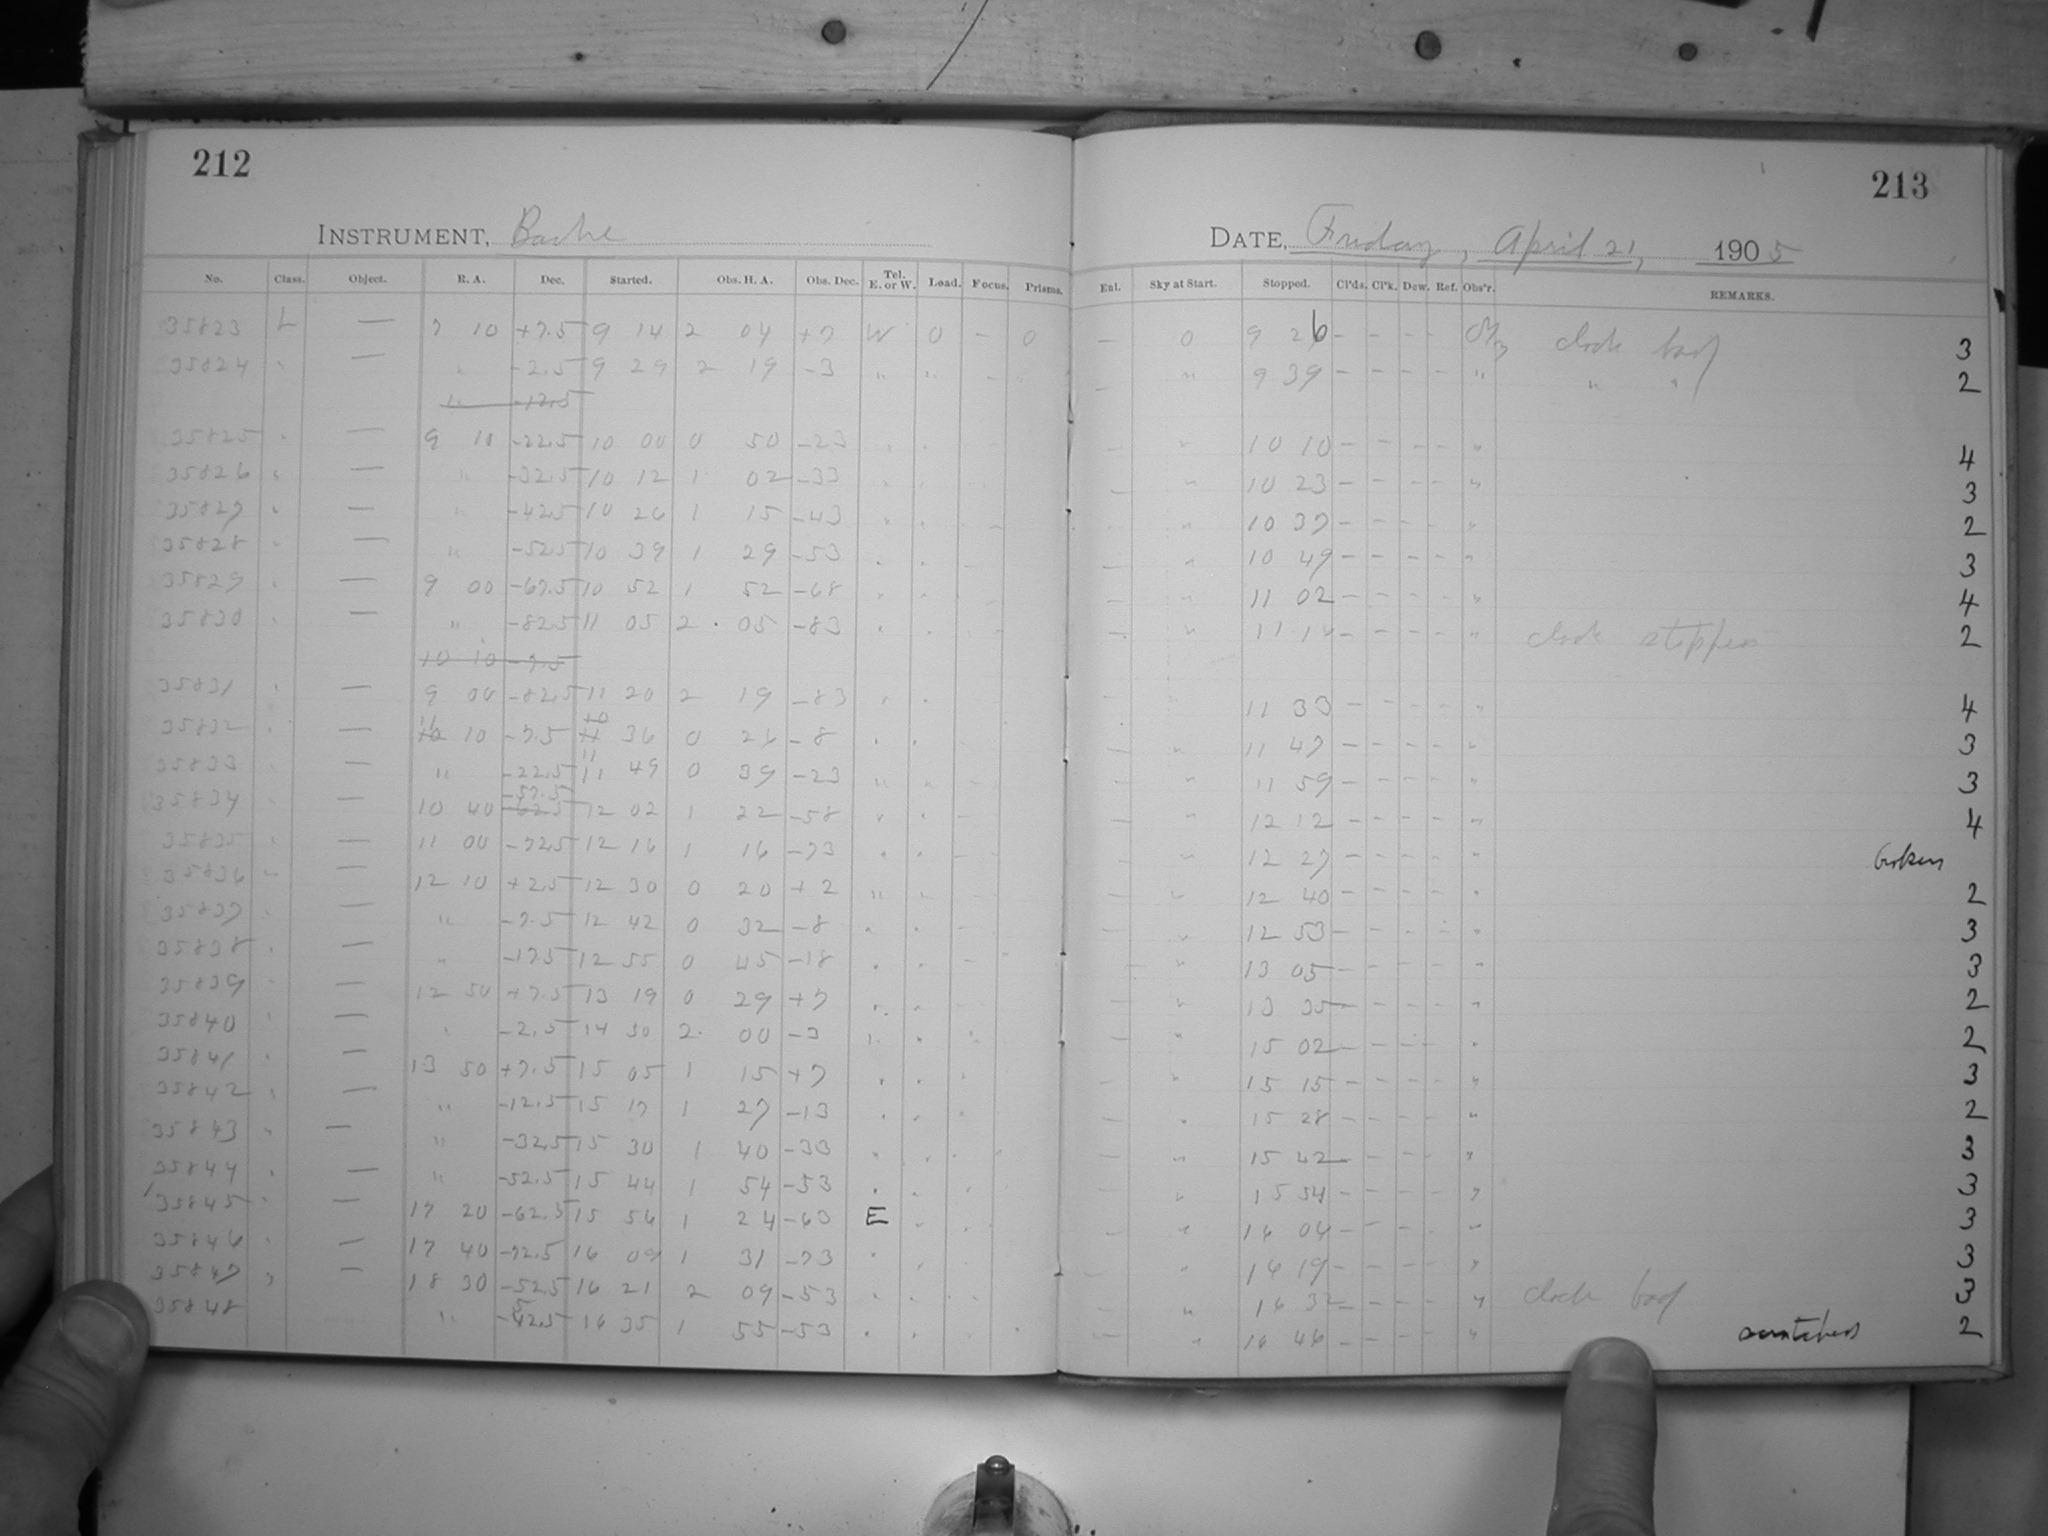 212
INSTRUMENT, Bache
No. Class. Object. R. A. Dec. Started. Obs. H. A. Obs. Dec. Tel. E. or W. Load. Focus. Prisms.
35823 L — 7 10 +7.5 9 14 2 04 +7 W 0 – 0
35824 " — " -2.5 9 29 2 19 -3 " " – "
" -12.5
35825 " — 9 10 -22.5 10 00 0 50 -23 " "
35826 " — " -32.5 10 12 1 02 -33 " "
35827 " — " -42.5 10 26 1 15 -43 " "
35828 " — " -52.5 10 39 1 29 -53 " "
35829 " — 9 00 -67.5 10 52 1 52 -68 " "
35830 " — " -82.5 11 05 2 05 -83 " "
10 10 -7.5
35831 " — 9 00 -82.5 11 20 2 19 -83 " "
35832 " — 11 10 -7.5 11 36 0 26 -8 " "
35833 " — " -22.5 11 49 0 39 -23 " "
35834 " — 10 40 -57.5 12 02 1 22 -58 " "
35835 " — 11 00 -72.5 12 16 1 16 -73 " "
35836 " — 12 10 +2.5 12 30 0 20 +2 " "
35837 " — " -7.5 12 42 0 32 -8 " "
35838 " — " -17.5 12 55 0 45 -18 " "
35839 " — 12 50 +7.5 13 19 0 29 +7 " "
35840 " — " -2.5 14 50 2 00 -3 " "
35841 " — 13 50 +7.5 15 05 1 15 +7 " "
35842 " — " -12.5 15 17 1 27 -13 " "
35843 " — " -32.5 15 30 1 40 -33 " "
35844 " — " -52.5 15 44 1 54 -53 " "
35845 " — 17 20 -62.5 15 56 1 24 -63 E "
35846 — 17 40 -72.5 16 09 1 31 -73 " "
35847 " — 18 30 -52.5 16 21 2 09 -53 " "
35848 " 16 35 1 55 -53 " "
213
DATE, Friday, April 21, 1905
Enl. Sky at Start. Stopped. Cl'ds. Cl'k. Dew. Ref. Obs'r. REMARKS.
— 0 9 26 – – – – clock bad 3
— " 9 39 – – – – " " " 2
— " 10 10 – – – – " 4
— " 10 23 – – – – " 3
— " 10 37 – – – – " 2
— " 10 49 – – – – " 3
— " 11 02 – – – – " 4
— " – – – – " clock stopped 2
11 33 – – – – " 4
— " 11 47 – – – – " 3
— " 11 59 – – – – " 3
— " 12 12 – – – – " 4
— " 12 27 – – – – " broken
— " 12 40 – – – – " 2
— " 12 53 – – – – " 3
— " 13 05 – – – – " 3
— " 13 35 – – – – " 2
— " 15 02 – – – – " 2
— " 15 15 – – – – " 3
— " 15 28 – – – – " 2
— " 15 42 – – – – " 3
— " 15 54 – – – – " 3
— " 16 06 – – – – " 3
" 16 19 – – – – " 3
— " 16 32 – – – – " clock bad 3
— " 16 46 – – – – " scratches 2